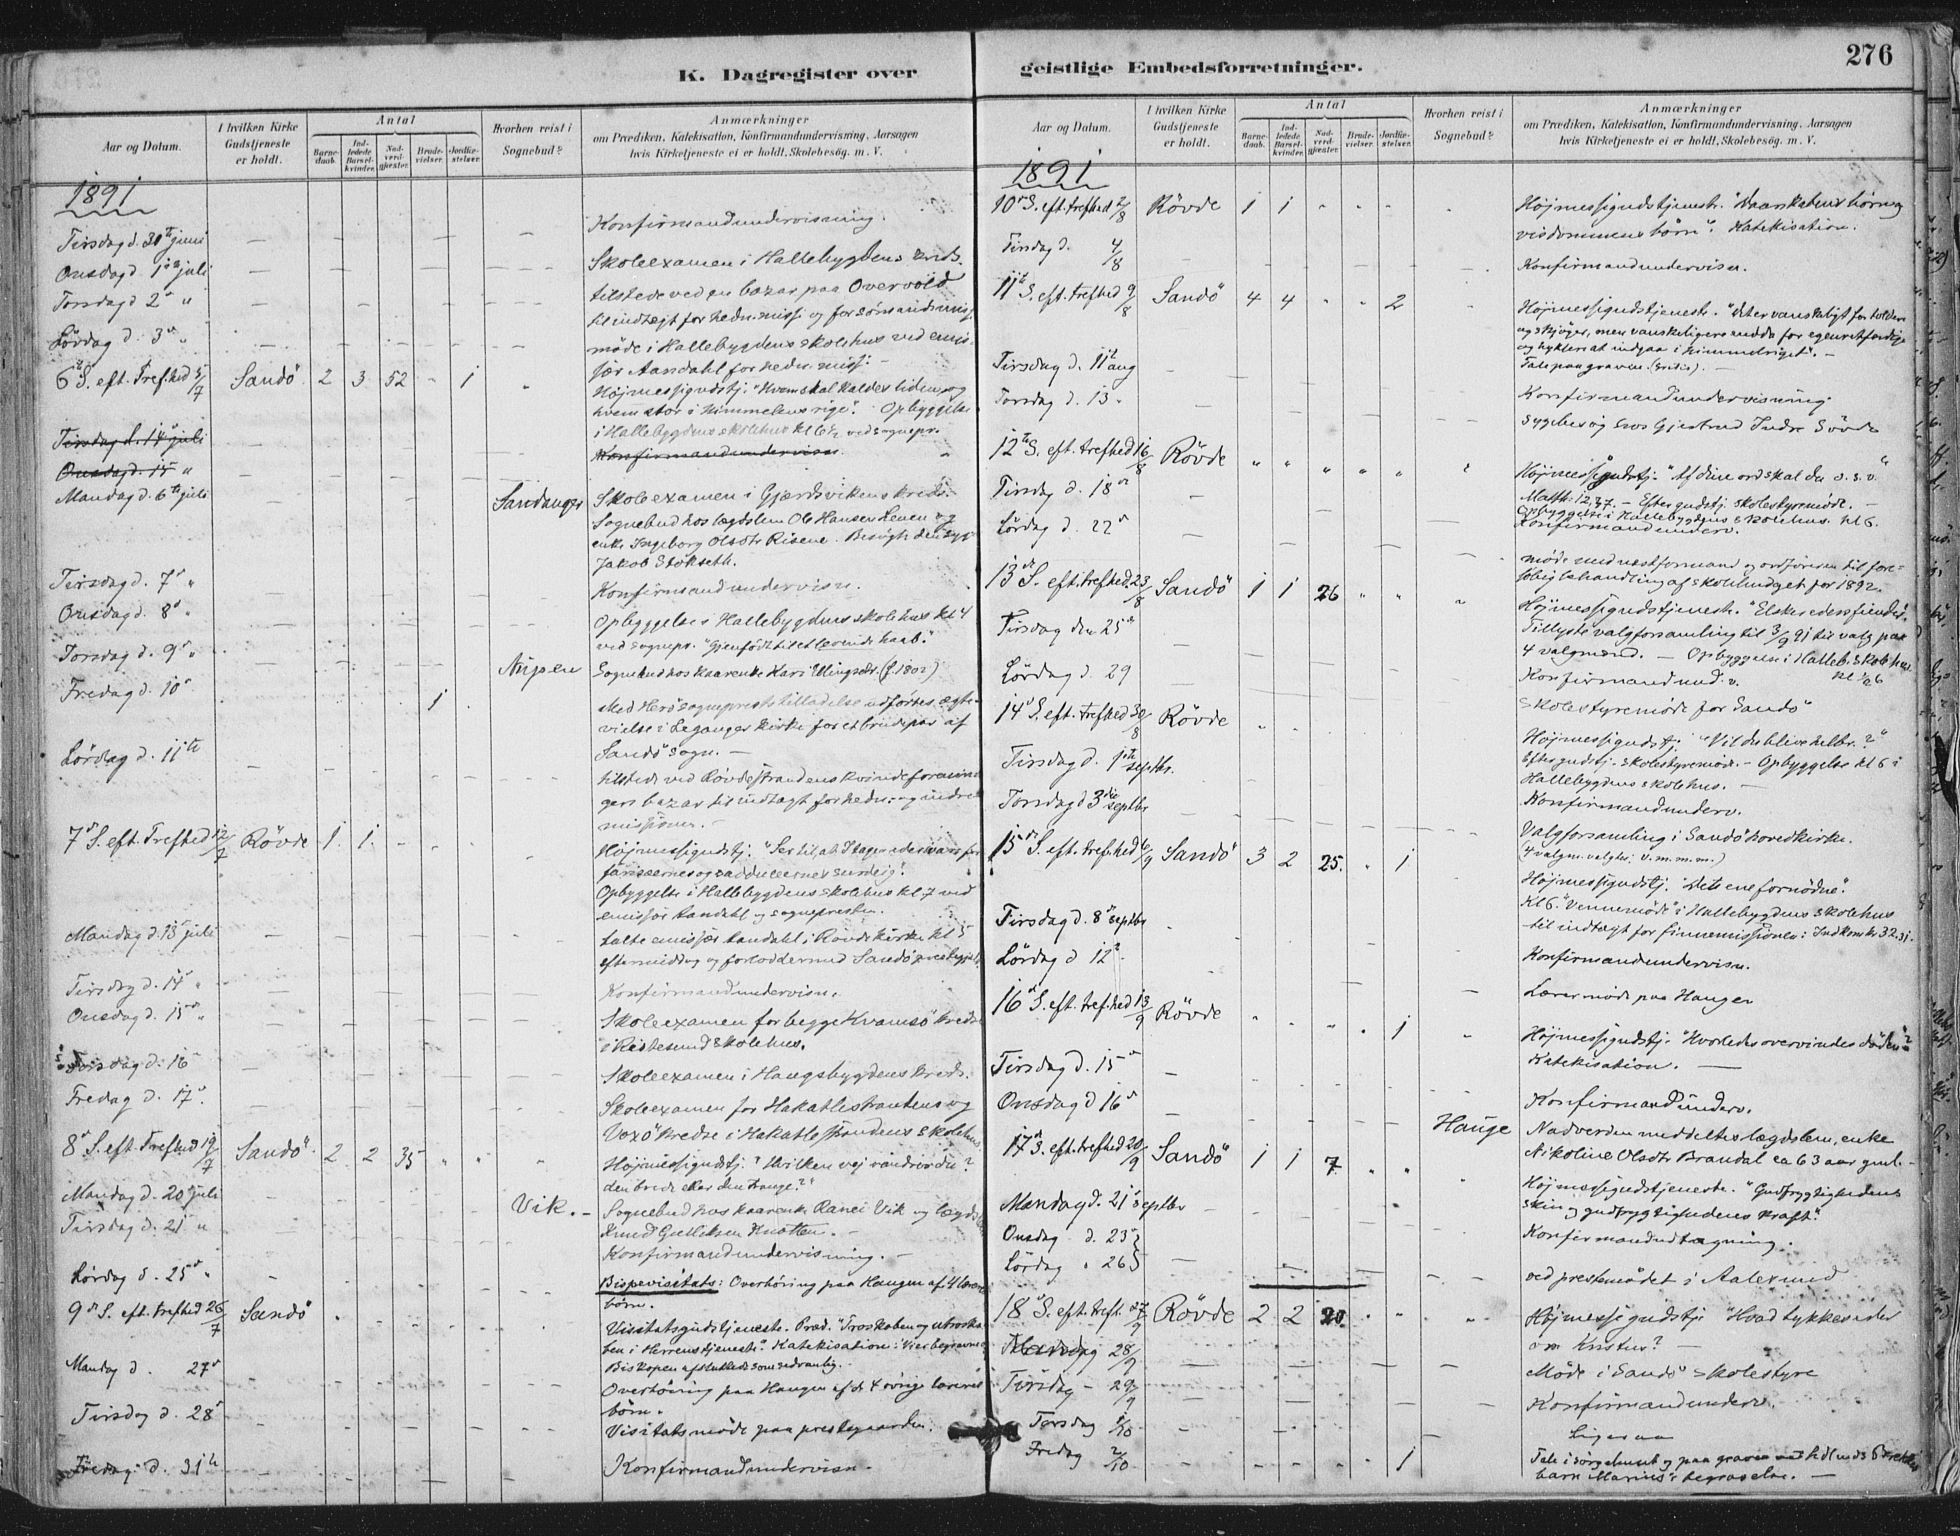 K. Dagregister over
geistlige Embedsforretninger.
276
Aar og Datum.
I hvilken Kirke Gudstjeneste er holdt.
Antal
Barnedaab.
Indledede Barselkvinder.
Nadverdgjæster.
Brudevielser.
Jordfæstelser.
Hvorhen reist i Sognebud?
Anmærkninger
om Prædiken, Katekisation, Konfirmandundervisning, Aarsagen
hvis Kirketjeneste ei er holdt, Skolebesög. m. V.
1891
Tirsdag d. 30te juni - Konfirmandundervisning.
Onsdag d. 1ste juli - Skoleexamen i Hallebygdens kreds.
Torsdag d 2den " - tilstede ved en bazar paa Overvold
til indtægt for hedn. miss. og for sømandsmiss.
Lördag d. 3die " - møde i Hallebygdens skolehus ved emis-
sær Aandahl for hedn. miss. -
6te S. eft. Trefhed 5/7 Sandö 2 3 52 " 1 " Højmessigudstj. "Hvem skal kaldes liden og
hvem stor i himmelens rige". Opbyggelse
i Hallebygdens skolehus kl 6½ ved sognepr.
Tirsdag d. 14de juli Konfirmandundervisn.
Onsdag d. 15 "
Mandag d. 6te juli Sandanger Skoleexamen i Gjærdsvikens kreds.
Sognebud hos lægdslem Ole Hansen og
enke Ingeborg Olsdtr Risene. Besøgte den syge
Jakob Stokseth.
Tirsdag d. 7de " Konfirmandundervisn.
Onsdag d. 8de " Opbyggelse i Hallebygdens skolehus kl 4
ved sognepr. "Gjenfödt til et levende haab."
Torsdag d. 9de " Nupen Sognebud hos kaarenke Kari (f. 1802)
Fredag d. 10de 1 Med Herö sogneprests tilladelse udførtes ægte-
vielse i Leganger kirke for et brudepar af
Sandö sogn. -
Lördag d. 11te tilstede ved Rövdestrandens kvindeforenin-
gers bazar til indtægt for hedn.- og indre-
missionen. -
7de S. eft. Trefhed 12/7 Rövde 1 1 Højmessigudstj. "Se til at I tager eder vare for
farisæernes og sadducæernes surdeig".
Opbyggelse i Hallebygdens skolehus kl 7 ved
emissær Aandahl og sognepresten.
Mandag d. 13 juli talte emissær Aandahl i Rövde kirke kl 5
eftermiddag og forlod dermed Sandö prestegjeld.
Tirsdag d. 14de " Konfirmandundervisn.
Onsdag d. 15de " Skoleexamen for begge Kvamsö kredse
i Ristesund skolehus.
Torsdag d. 16 Skoleexamen i Haugsbygdens kreds.
Fredag d. 17de Skoleexamen for Hakallestrandens og
Voxö kredse i Hakallestrandens skolehus
8de S. eft. Trefhed 19/7 Sandö 2 2 35 " " Højmessigudstj. "Hvilken vej vandrer du?
den brede eller den trange?"
Mandag d. 20de juli Vik. - Sognebud hos kaarenke Vik og lægds.
Knud
Tirsdag d. 21 " Konfirmandundervisning. -
Lördag d. 25de " Bispevisitats: Overhöring paa Haugen af 4 lærere
börn.
9de S. eft. trefhed 26/7 Sandö Visitatsgudstjeneste. Præd. "Troskaben og utroska-
ben i Herrens tjeneste". Katekisation:
Biskopen afsluttede som sedvanlig.
Mandag d. 27de Overhöring paa Haugen af de 4 övrige læreres
börn.
Tirsdag d. 28de Visitatsmöde paa prestegaarden.
Fredag d. 31te Konfirmandundervisn.
Aar og Datum.
I hvilken Kirke Gudstjeneste er holdt.
Antal
Barnedaab.
Indledede Barselkvinder.
Nadverdgjæster.
Brudevielser.
Jordfæstelser.
Hvorhen reist i Sognebud?
Anmærkninger
om Prædiken, Katekisation, Konfirmandundervisning, Aarsagen
hvis Kirketjeneste ei er holdt, Skolebesög. m. V.
1891
10de S. eft. trefhed 2/8 Rövde 1 1 " " " Højmessigudstjenestr. "Daarskabens börn og
visdommens börn". Katekisation.
Tirsdag d. 4/8 Konfirmandundervisn.
11te S. eft. trefhed 9/8 Sandö 4 4 " " 2 Højmessigudstjeneste. "Det er vanskeligt for toldere
og skjöger, men vanskeligere endda for egenretfærdige
og hyklere at indgaa i himmelriget". -
Tale paa graven. (gratis). -
Tirsdag d. 11te aug Konfirmandundervisning.
Torsdag d. 13 " Sygebesög hos Gjertrud Indre Sövde
12te S. eft. trefhed 16/8 Rövde " " " " " " Højmessigudstj. "Af dine ord skal du o.s.v."
Matth. 12.37. - Efter gudstj. skolestyremöde. -
Opbyggelse i Hallebygdens skolehus. kl 6.
Tirsdag d. 18de Konfirmandunderv.
Lördag d. 22de möde med nestformand og ordföreren til fore-
löbig behandling af skolebudget for 1892.
13de S. eft. trefhed 23/8 Sandö 1 1 26 " " " Højmessigudstjeneste. "Elsker eders fiender".
Tillyste valgforsamling til 3/9 91 til valg paa
4 valgmænd. - Opbyggelse i Halleb. skolehus
kl 6
Tirsdag den 25de Konfirmandund.v.
Lördag d. 29 Skolestyremöde for Sandö
14de S. eft. trefhed 30/8 Rövde " Højmessigudstj. "Vil du blive helbr.?"
Efter gudstj. skolestyremöde. - Opbyggelse kl 6 i
Hallebygdens skolehus. -
Tirsdag d. 1ste septbr. Konfirmandunderv.
Torsdag d 3die septbr Valgforsamling i Sandö hovedkirke.
(4 valgm. valgtes: v.m.m.m.)
15de S. eft. trefhed 6/9 Sandö 3 2 25. " 1 Højmessigudstj. "Det ene fornødne".
Kl 6. "Vennemöde" i Hallebygdens skolehus
til indtægt for finnemissionen: Indkom kr 32.31.
Tirsdag d. 8de septbr Konfirmandundervisn.
Lördag d 12te Lærermöde paa Haugen
16de S. eft. trefhed 13/9 Rövde " " " " 1 " Højmessigudstj. "Hvorledes overvindes döden?"
Katekisation. -
Tirsdag d. 15de Konfirmandunderv.
Onsdag d 16de Hauge Nadverden meddeltes lægdslem, enke
Nikoline Olsdtr Brandal ca 63 aar gml. -
17de S. eft. trefhed 20/9 Sandö 1 1 7 " " " Højmessigudstjeneste. "Gudfrygtighedens
skin og gudfrygtighedens kraft".
Mandag d. 21de septbr Konfirmandudtagning.
Onsdag d. 23}
Lördag " 26} ved prestemödet i Aalesund
18de S. eft. treft. 27/9 Rövde 2 2 20. " " " Højmessigudstj. "Hvad tykkes eder
om Kristus? -
Mandag 28/9 Möde i Sandö skolestyre
Tirsdag - 29/9 Konfirmandunderv.
Torsdag 1/10 Ligesaa
Fredag 2/10 1 Tale i sörgehuset og paa graven ved
barn Marius's begravelse. -